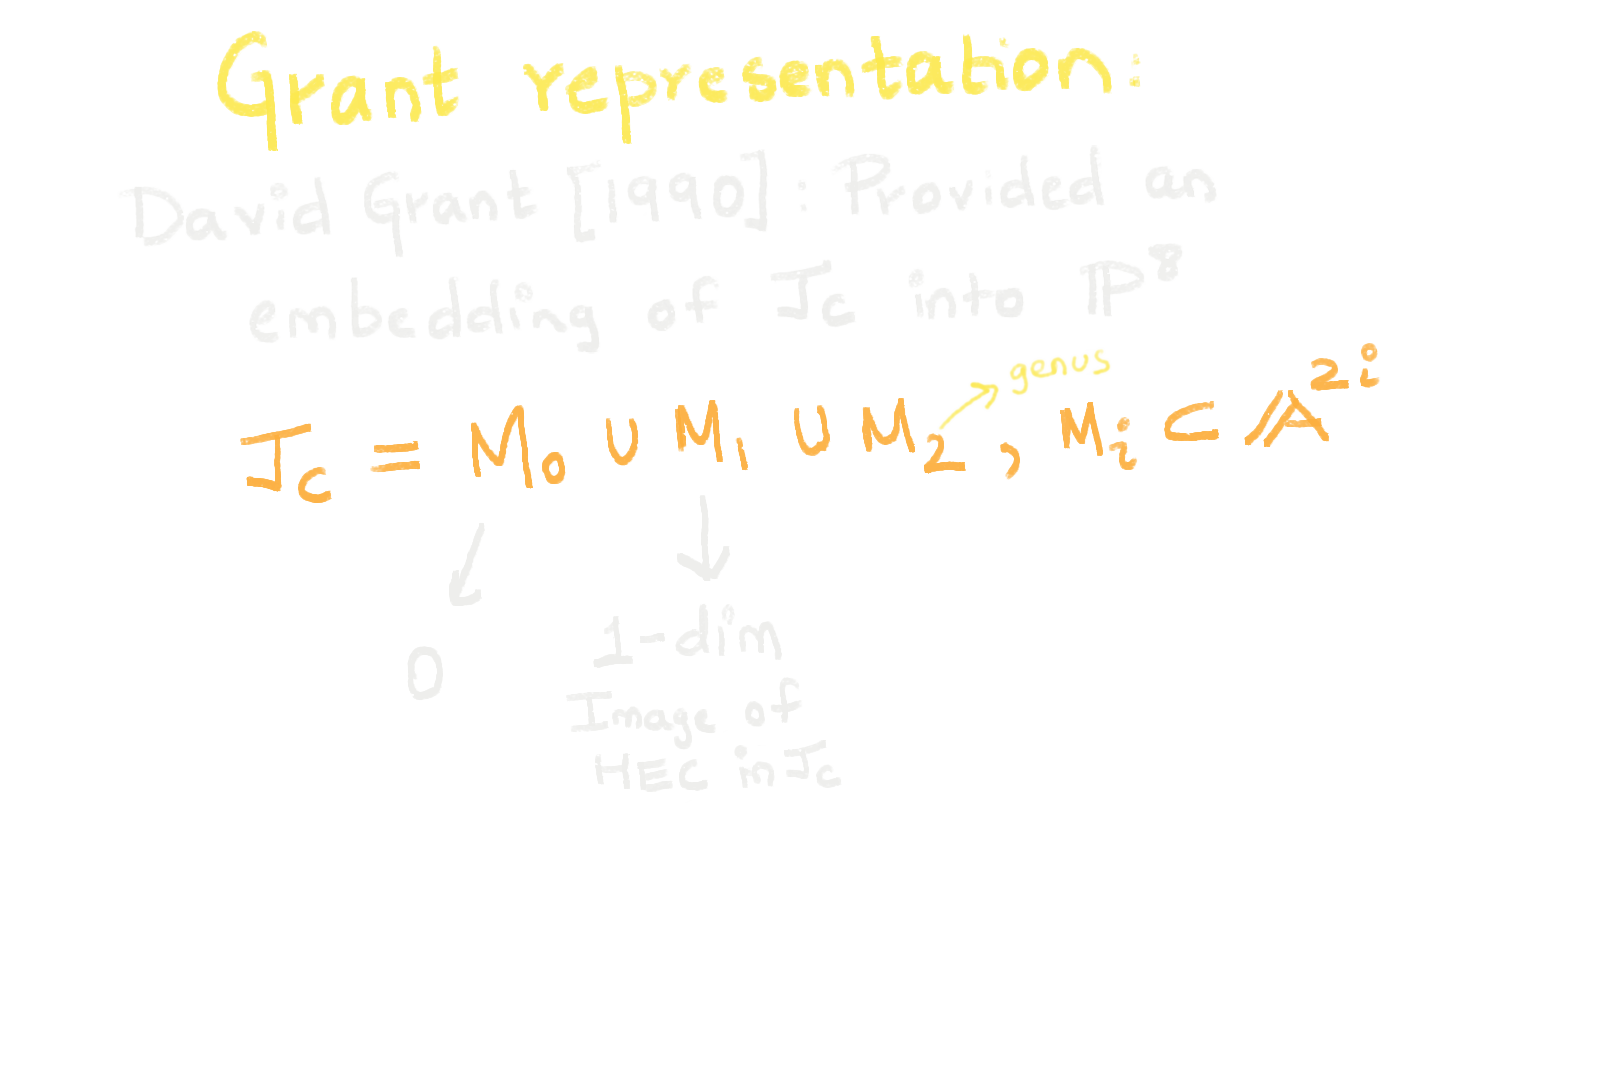 Grant representation:
David Grant [1990] : Provided an
embedding of J_C into ℙ^8
genus
J_C = M_0 ∪ M_1 ∪ M_2 , M_i ⊂ 𝔸^{2i}
0
1-dim
Image of
HEC in J_C